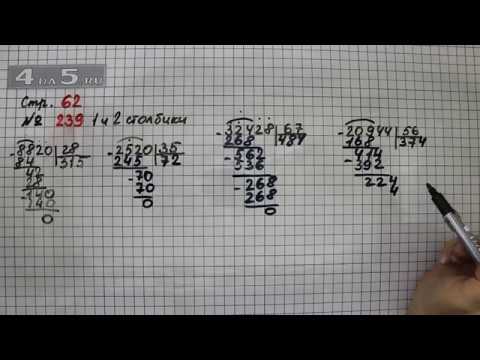 4НА5.RU
Стр. 62
№ 239 1 и 2 столбики
-8820|28
84|315
42
28
-140
140
0
-2520|35
245|72
-70
70
0
-32428|67
268|484
-562
536
-268
268
0
-20944|56
168|374
-414
392
224
4